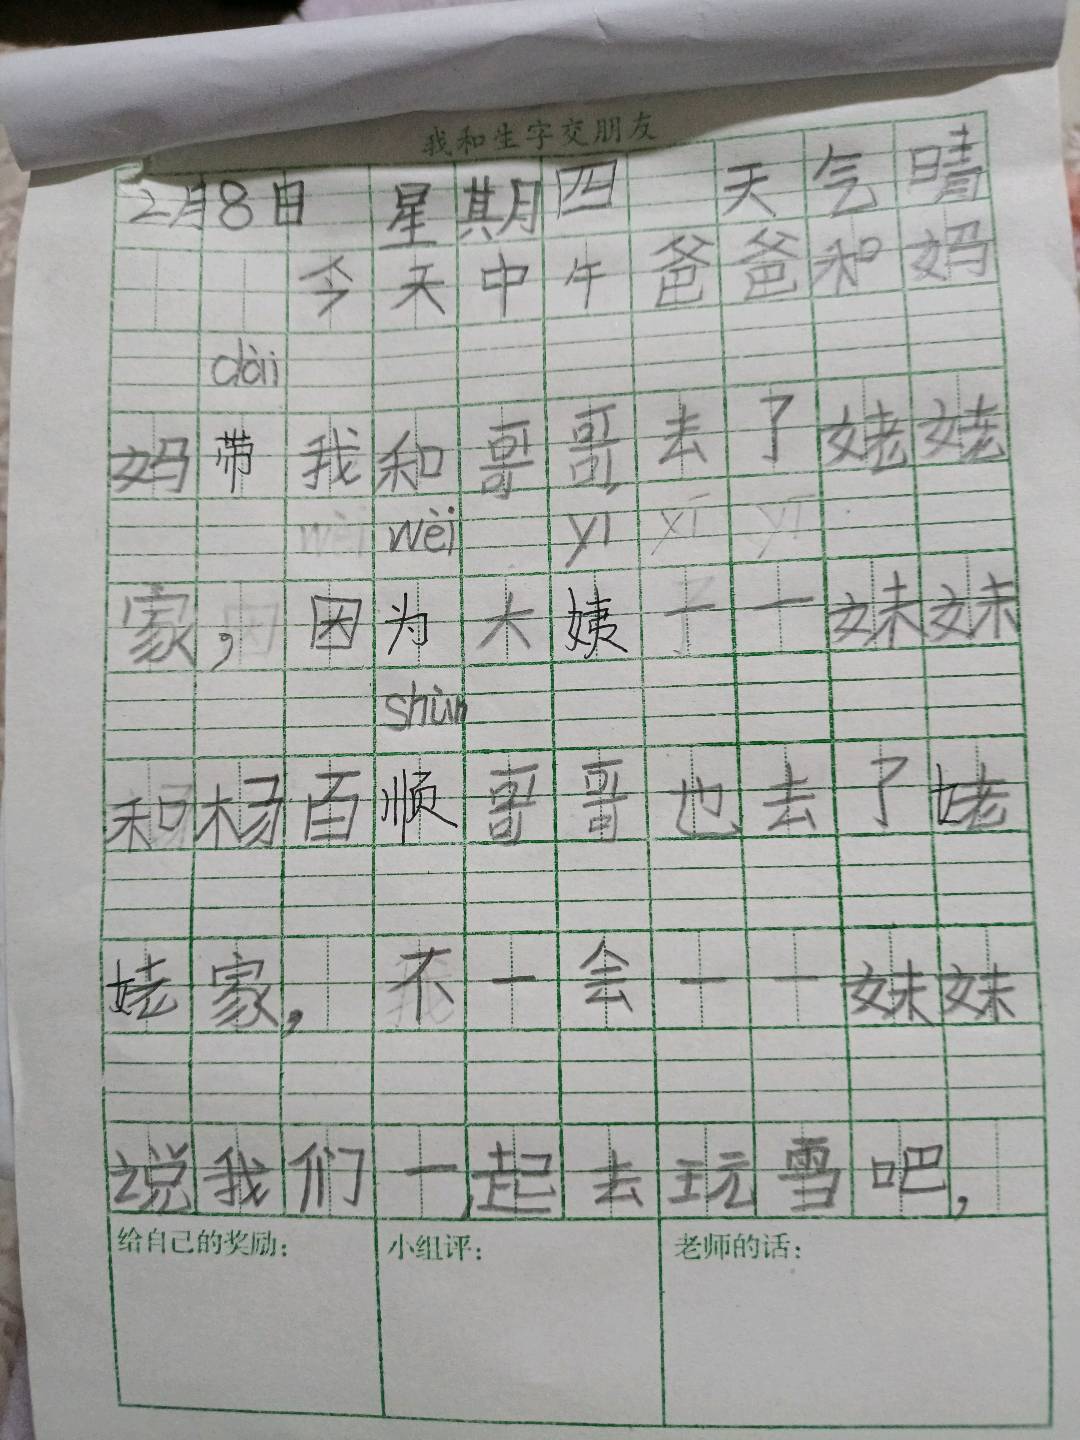 我和生字交朋友
2月8日 星期四 天气晴
今天中午爸爸和妈
dài
妈带我和哥哥,去了姥姥
wèi wèi yí yí yí
家,因为大姨一一妹妹
shùn
和杨百顺哥哥也去了姥
姥家,不一会一一妹妹
说我们一起去玩雪吧,
给自己的奖励: 小组评: 老师的话: